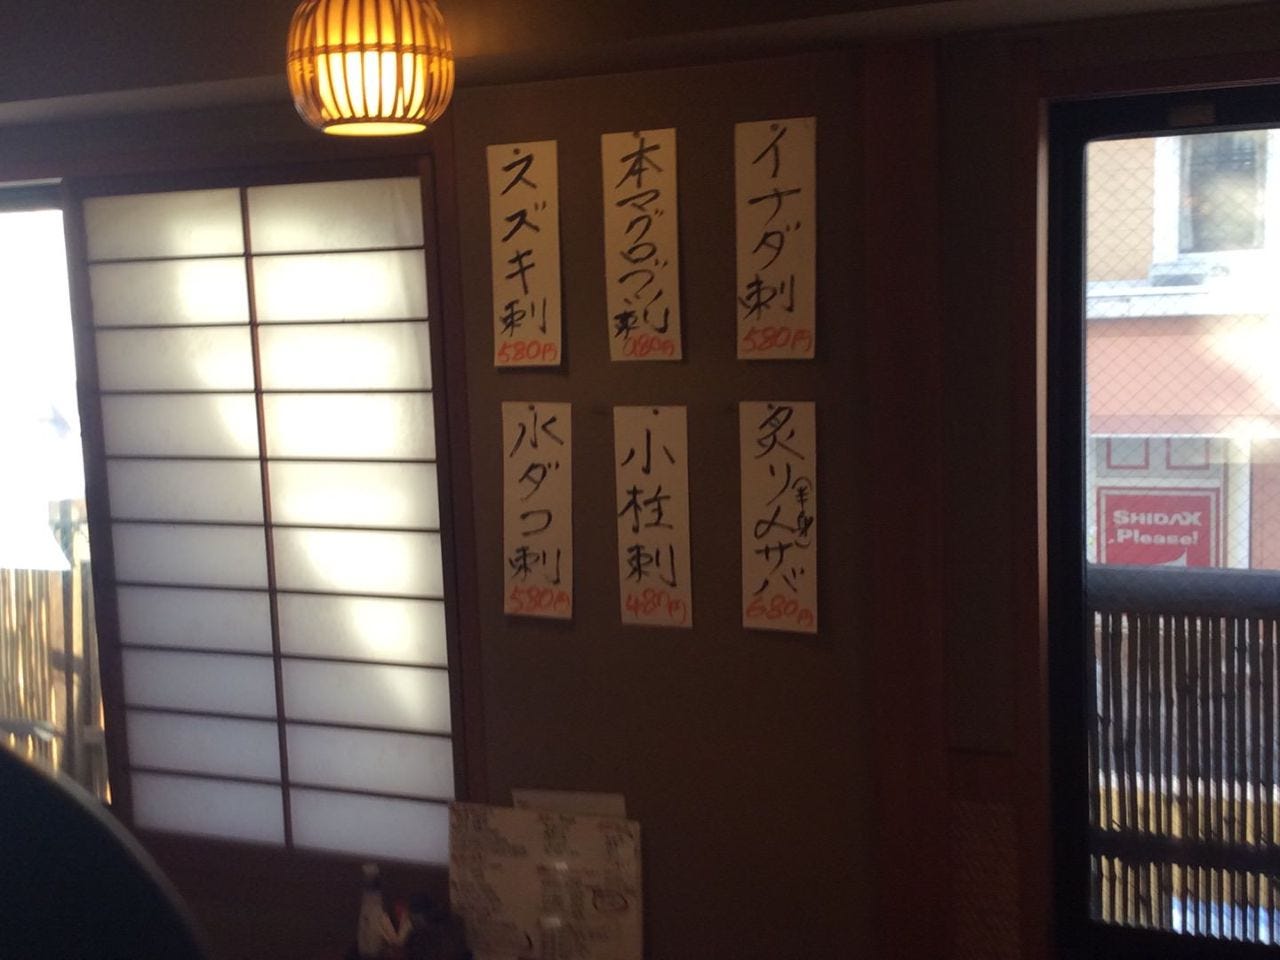 イナダ刺
580円
本マグロブツ刺
スズキ刺
580円
炙り〆サバ
(半身)
680円
小柱刺
480円
水ダコ刺
580円
SHIDAX
Please!